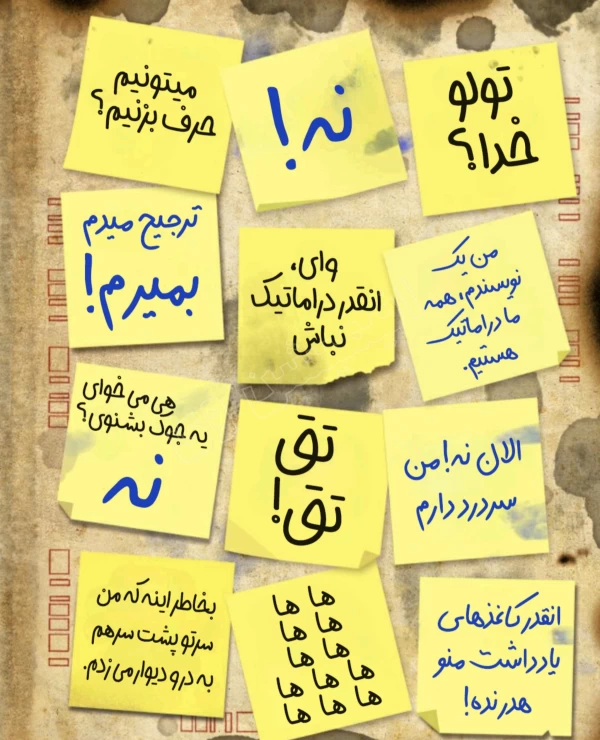 میتونیم
حرف بزنیم؟
نه!
تولو
خدا؟
ترجیح میدم
بمیرم!
وای،
انقدر دراماتیک
نباش
من یک
نویسندم، همه
ما دراماتیک
هستیم.
هی می خوای
یه جوک بشنوی؟
نه
تق
تق!
الان نه! من
سردرد دارم
بخاطر اینه که من
سرتو پشت سرهم
به در و دیوار می زدم.
ها ها
ها ها
ها ها
ها ها ها
ها ها ها
انقدر کاغذهای
یادداشت منو
هدر نده!